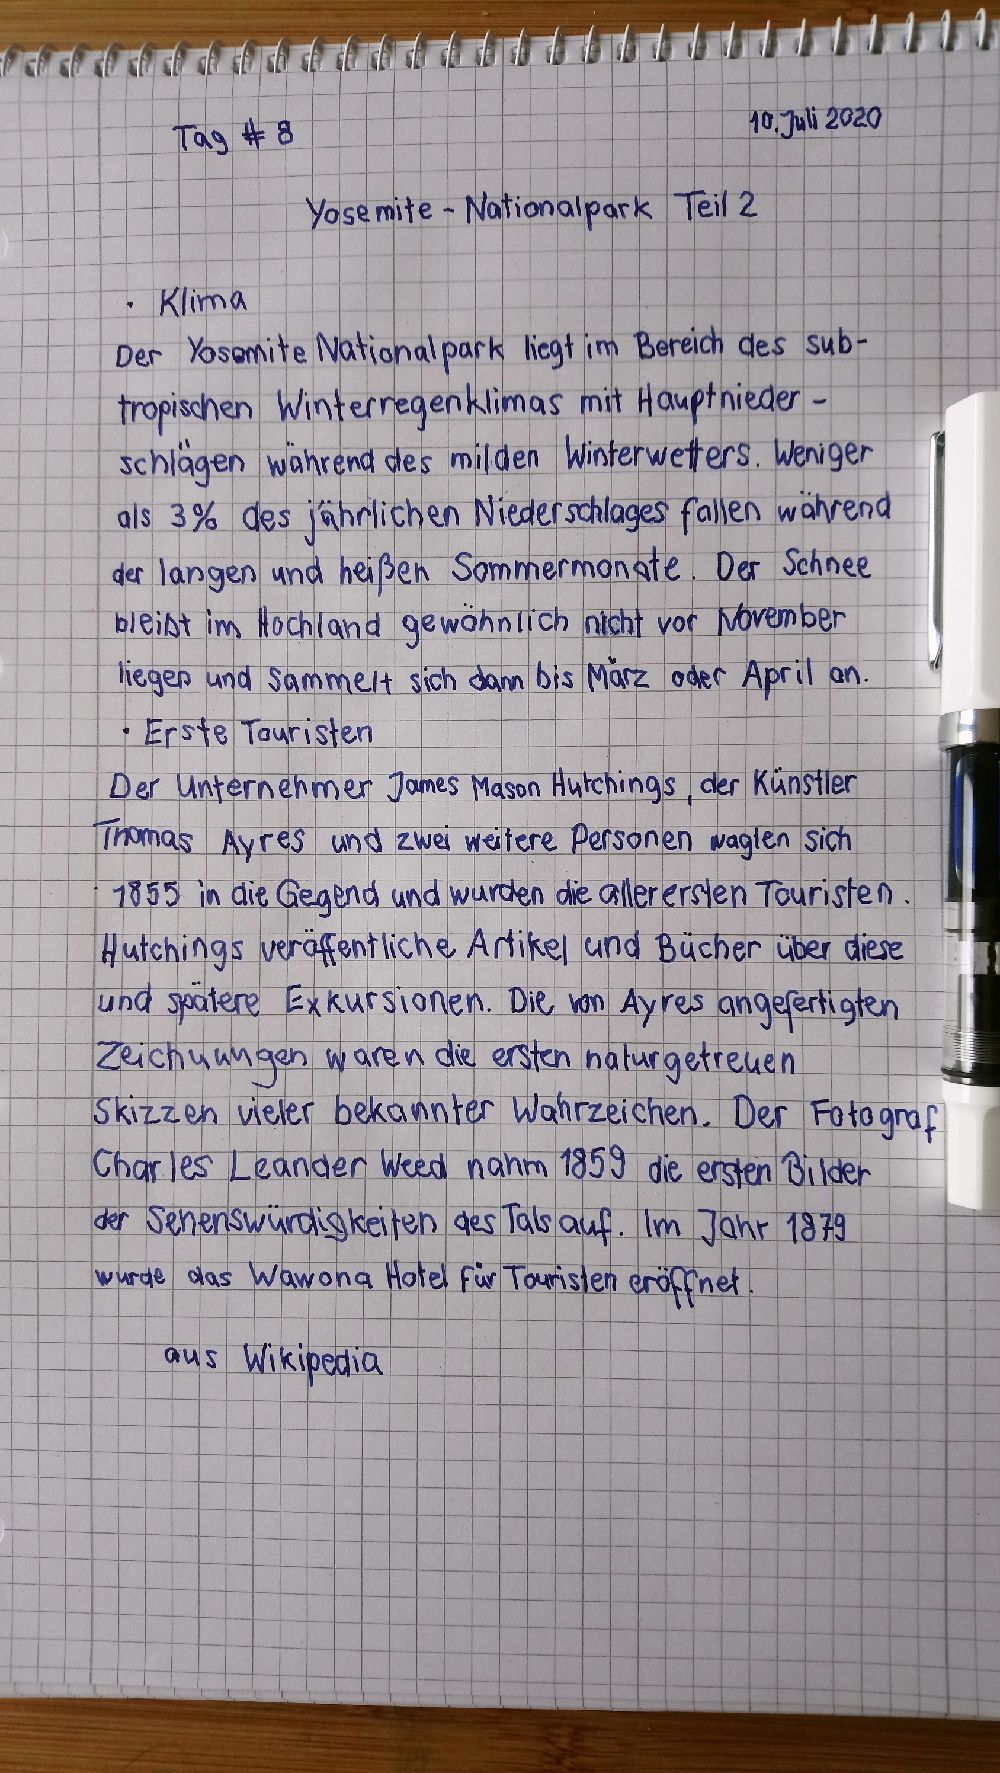 Tag # 8
10. Juli 2020
Yosemite - Nationalpark Teil 2
· Klima
Der Yosemite Nationalpark liegt im Bereich des sub-
tropischen Winterregenklimas mit Hauptnieder-
schlägen während des milden Winterwetters. Weniger
als 3% des jährlichen Niederschlages fallen während
der langen und heißen Sommermonate. Der Schnee
bleibt im Hochland gewöhnlich nicht vor November
liegen und sammelt sich dann bis März oder April an.
· Erste Touristen
Der Unternehmer James Mason Hutchings, der Künstler
Thomas Ayres und zwei weitere Personen wagten sich
1855 in die Gegend und wurden die allerersten Touristen.
Hutchings veröffentliche Artikel und Bücher über diese
und spätere Exkursionen. Die von Ayres angefertigten
Zeichuungen waren die ersten naturgetreuen
Skizzen vieler bekannter Wahrzeichen. Der Fotograf
Charles Leander Weed nahm 1859 die ersten Bilder
der Sehenswürdigkeiten des Tals auf. Im Jahr 1879
wurde das Wawona Hotel für Touristen eröffnet.
aus Wikipedia